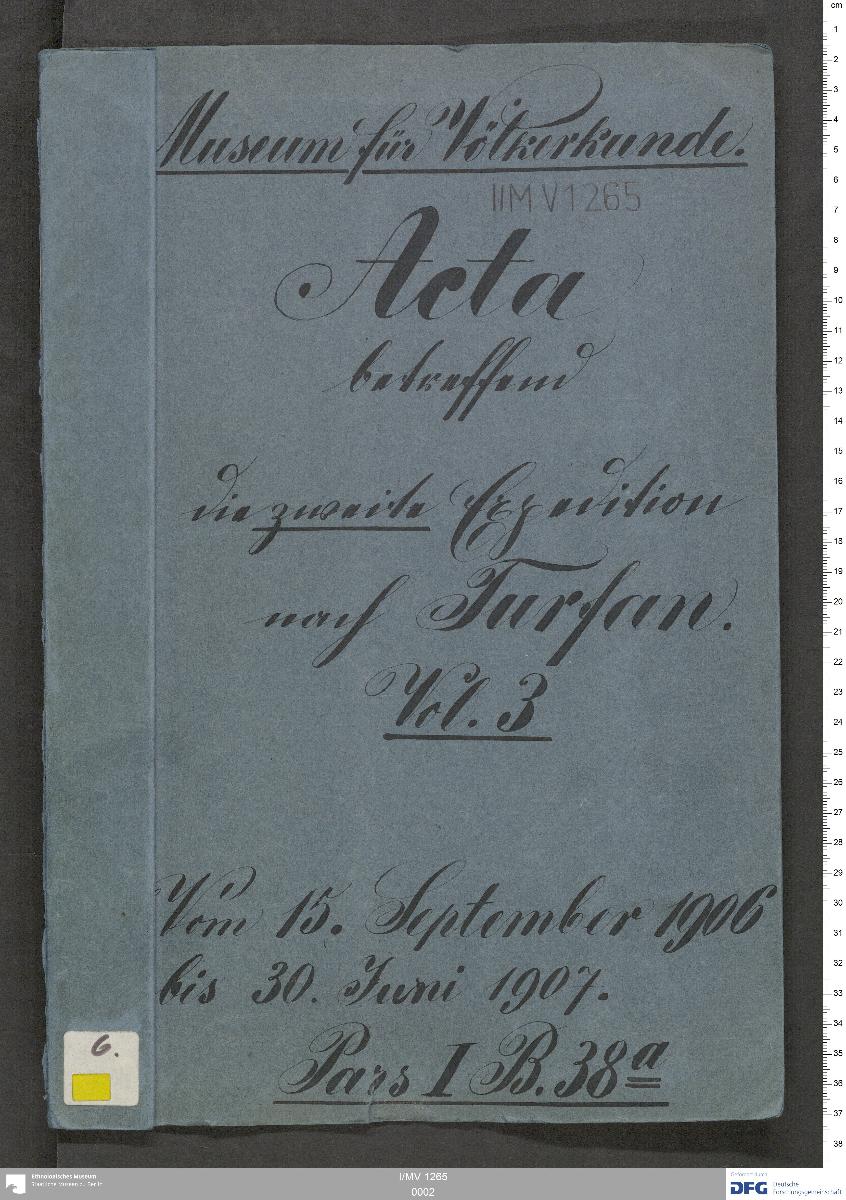 Museum für Völkerkunde.
I/MV 1265
Acta
betreffend
die zweite Expedition
nach Turfan.
Vol. 3
Vom 15. September 1906
bis 30. Juni 1907.
Pars I B. 38 a
6.
cm
1
2
3
4
5
6
7
8
9
10
11
12
13
14
15
16
17
18
19
20
21
22
23
24
25
26
27
28
29
30
31
32
33
34
35
36
37
38
Ethnologisches Museum
Staatliche Museen zu Berlin
I/MV 1265
0002
Gefördert durch
DFG Deutsche
Forschungsgemeinschaft